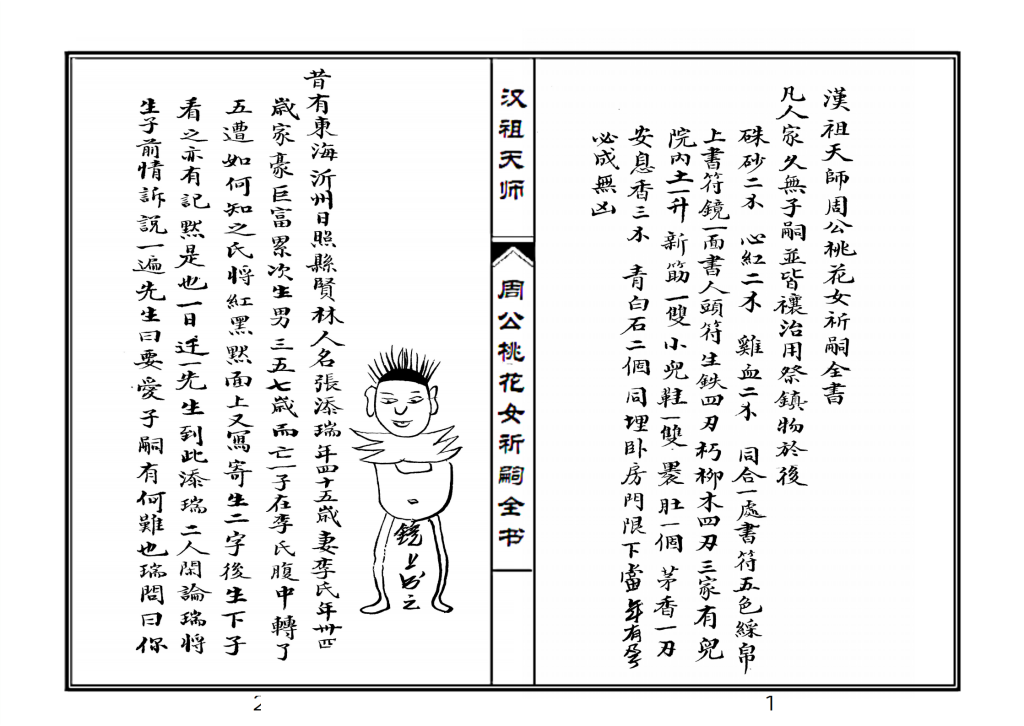 漢祖天師周公桃花女祈嗣全書
凡人家久無子嗣並皆禳治用祭鎮物於後
硃砂二不 心紅二不 雞血二不 同合一處書符五色綵帛
上書符鏡一面書人頭符生鉄四刃朽柳木四刃三家有兒
院內土一升 新筯一雙小兒鞋一雙裹肚一個 茅香一刃
安息香三不 青白石二個同埋卧房門限下當年有孕
必成無凶
汉祖天师
周公桃花女祈嗣全书
昔有東海沂州日照縣賢林人名張添瑞年四十五歲妻李氏年卅四
歲家豪巨富累次生男三五七歲而亡一子在李氏腹中轉了
五遭如何知之氏將紅黑默面上又寫寄生二字後生下子
看之亦有記默是也一日迋一先生到此添瑞二人閑論瑞將
生子前情訴說一遍先生曰要愛子嗣有何難也瑞問曰你
鏡上書之
2
1